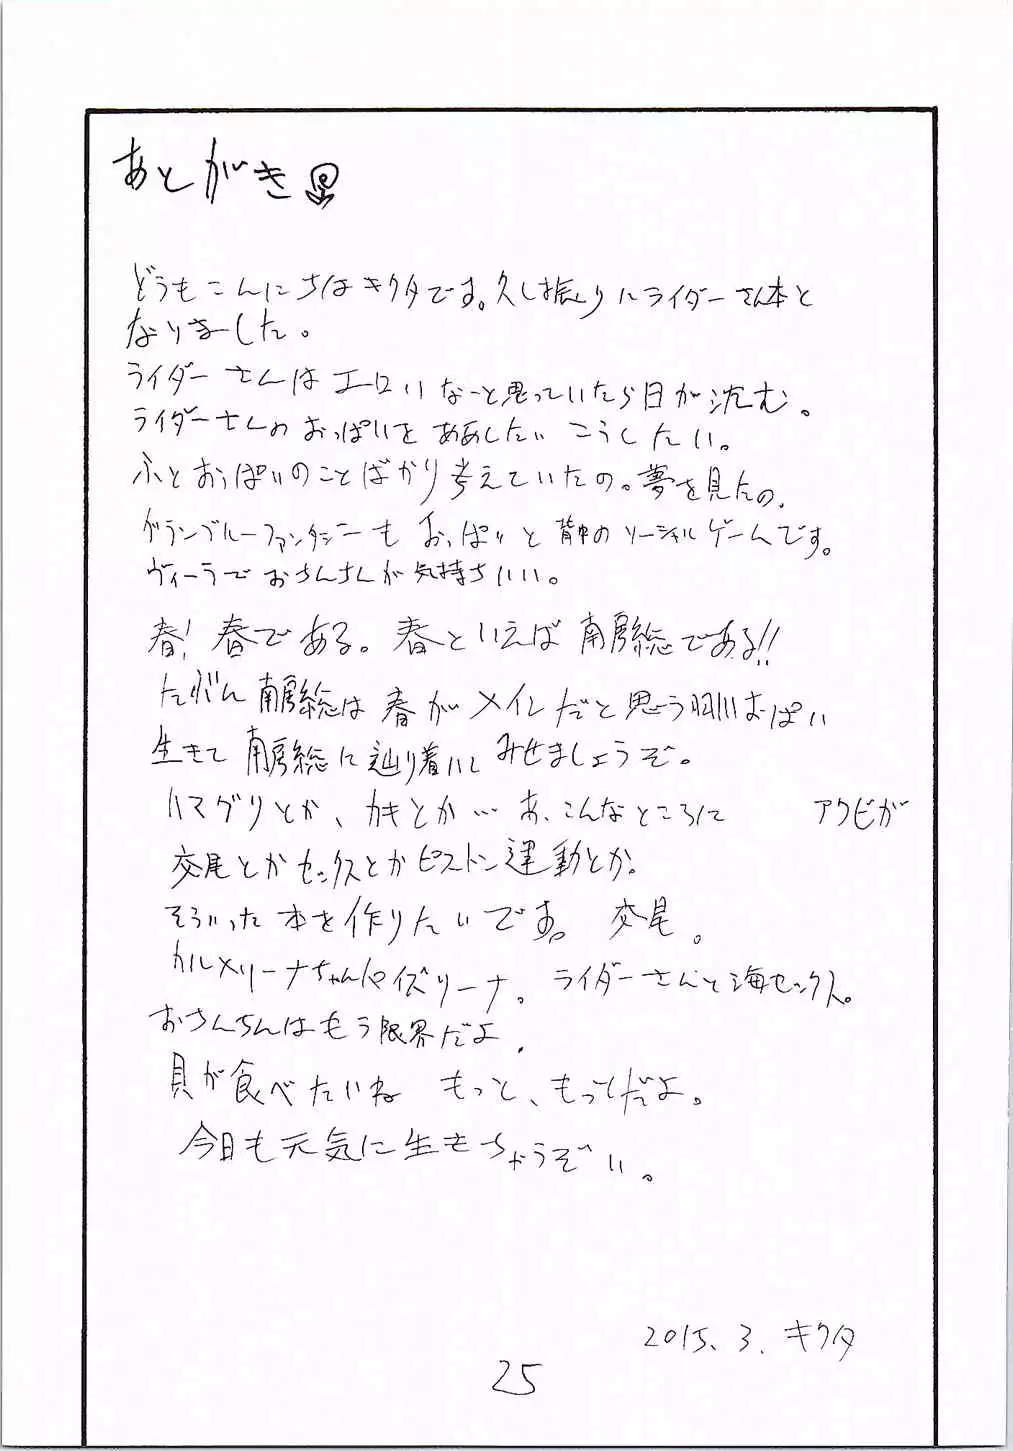 あとがき
どうもこんにちはキクタです。久し振りにライダーさん本と
なりました。
ライダーさんはエロいなーと思っていたら日が沈む。
ライダーさんのおっぱいをああしたいこうしたい。
ふとおっぱいのことばかり考えていたの。夢を見たの。
グランブルーファンタジーもおっぱいと背中のソーシャルゲームです。
ヴィーラでおちんちんが気持ちいい。
春!春である。春といえば南房総である!!
たぶん南房総は春がメインだと思う おっぱい
生きて南房総に辿り着いてみせましょうぞ。
ハマグリとか、カキとか…あ、こんなところに アケビが
交尾とかセックスとかピストン運動とか。
そういった本を作りたいです。 交尾。
カルメリーナちゃんパイズリーナ。 ライダーさんと海セックス。
おちんちんはもう限界だよ。
貝が食べたいね もっと、もっとだよ。
今日も元気に生きちゃうぞい。
2015.3. キクタ
25